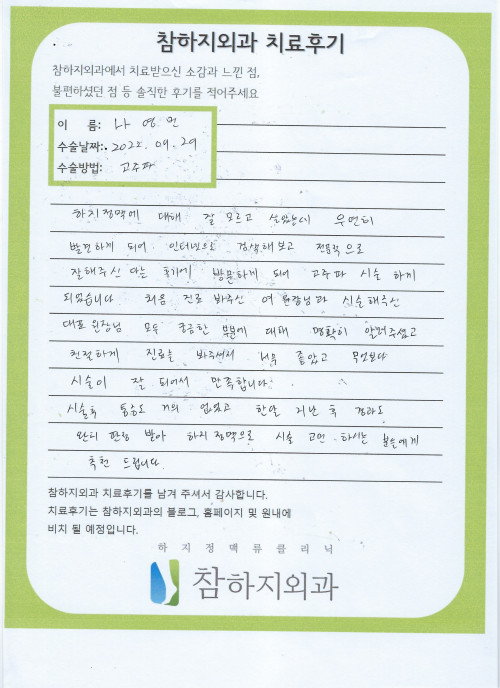 참하지외과 치료후기
참하지외과에서 치료받으신 소감과 느낀 점,
불편하셨던 점 등 솔직한 후기를 적어주세요
이 름: 나
수술날짜: 2022. 04. 29
수술방법: 고주파
하지정맥에 대해 잘 모르고 살았는데 우연히
발견하게 되어 인터넷으로 검색해보고 전문적으로
잘해주신 다는 후기에 방문하게 되어 고주파 시술 하게
되었습니다 처음 진료 봐주신 여 원장님과 시술해주신
대표원장님 모두 궁금한 부분에 대해 명확히 알려주셨고
친절하게 진료를 봐주셔서 너무 좋았고 무엇보다
시술이 잘 되어서 만족합니다.
시술후 통증도 거의 없었고 한달 지난 후 경과도
완치 판정 받아 하지정맥으로 시술 고민 하시는 분들에게
추천 드립니다
참하지외과 치료후기를 남겨 주셔서 감사합니다.
치료후기는 참하지외과의 블로그, 홈페이지 및 원내에
비치 될 예정입니다.
하지정맥류클리닉
참하지외과